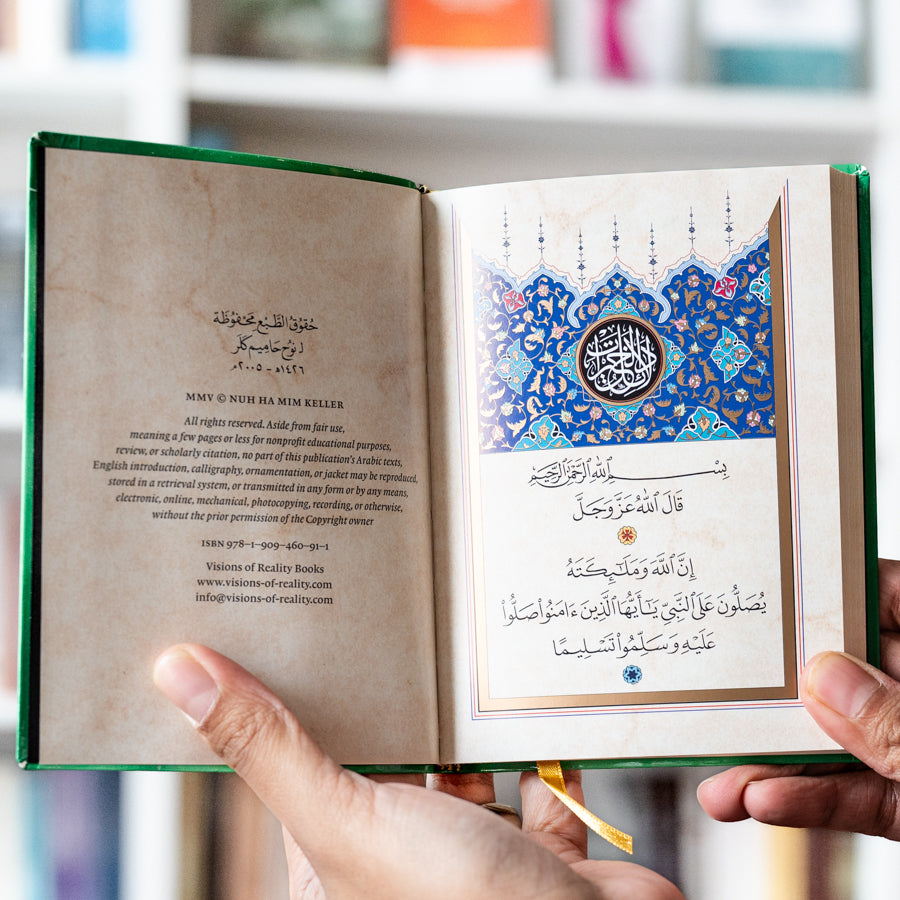 حُقُوقُ الطَّبْعِ مَحْفُوظَة
لِـ نُوح حَامِيم كَلَر
١٤٢٦ه - ٢٠٠٥م
MMV © NUH HA MIM KELLER
All rights reserved. Aside from fair use,
meaning a few pages or less for nonprofit educational purposes,
review, or scholarly citation, no part of this publication's Arabic texts,
English introduction, calligraphy, ornamentation, or jacket may be reproduced,
stored in a retrieval system, or transmitted in any form or by any means,
electronic, online, mechanical, photocopying, recording, or otherwise,
without the prior permission of the Copyright owner
ISBN 978–1–909–460–91–1
Visions of Reality Books
www.visions-of-reality.com
info@visions-of-reality.com
دلائل الخيرات
بِسْمِ ٱللَّهِ ٱلرَّحْمَٰنِ ٱلرَّحِيمِ
قَالَ ٱللَّهُ عَزَّ وَجَلَّ
إِنَّ ٱللَّهَ وَمَلَٰٓئِكَتَهُۥ
يُصَلُّونَ عَلَى ٱلنَّبِيِّ يَٰٓأَيُّهَا ٱلَّذِينَ ءَامَنُوا۟ صَلُّوا۟
عَلَيْهِ وَسَلِّمُوا۟ تَسْلِيمًا